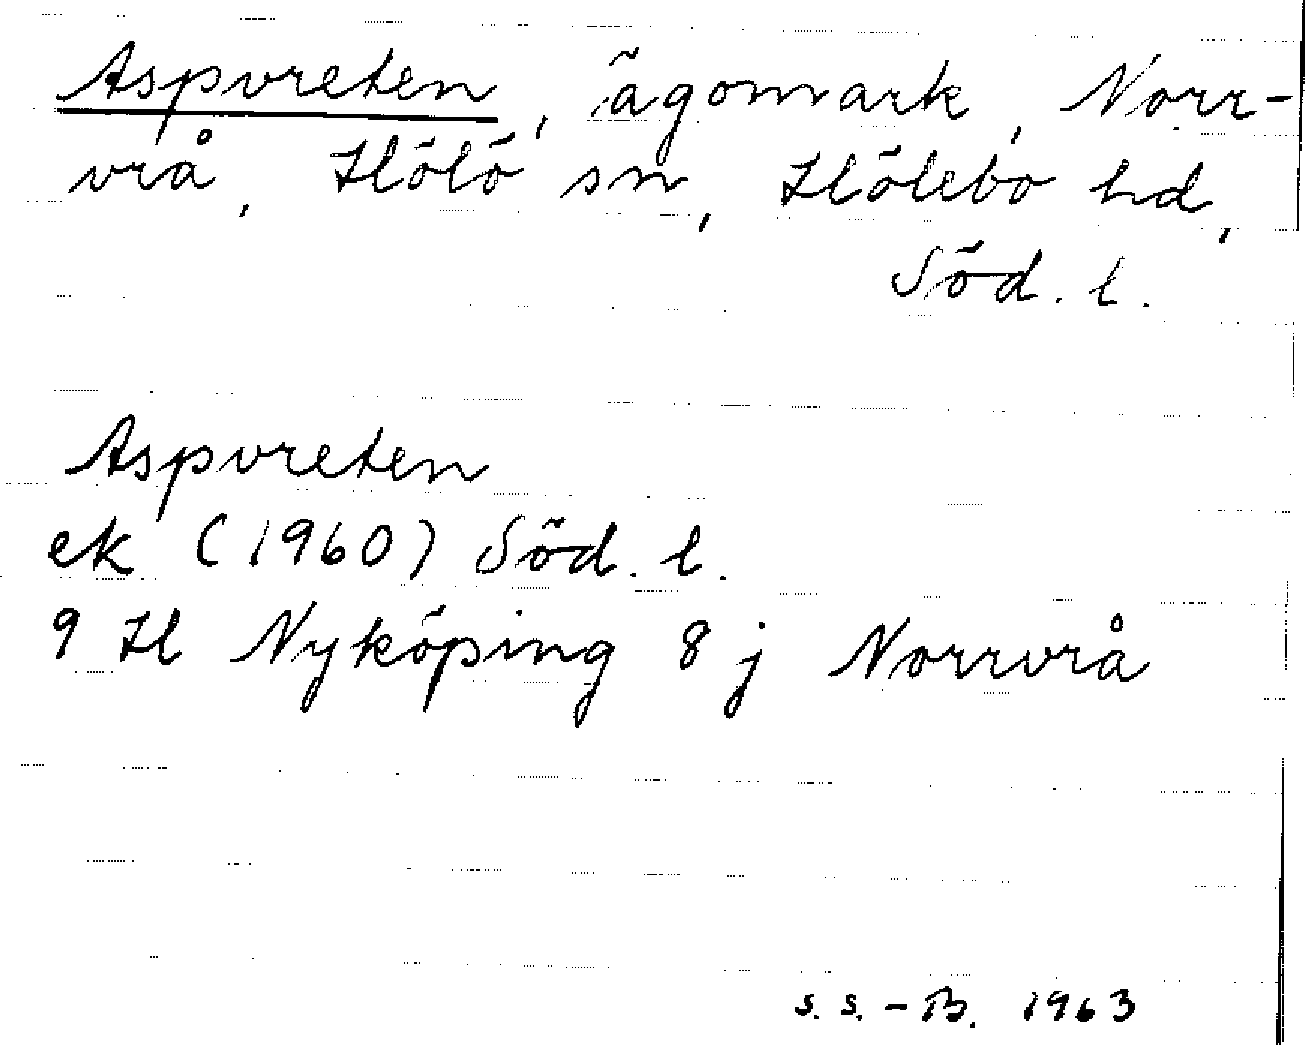 Aspvreten, ägomark, Norr-
vrå, Hölö sn, Hölebo hd,
Söd. l.
Aspvreten
ek (1960) Söd. l.
9 H Nyköping 8 j Norrvrå
S. S. - B. 1963